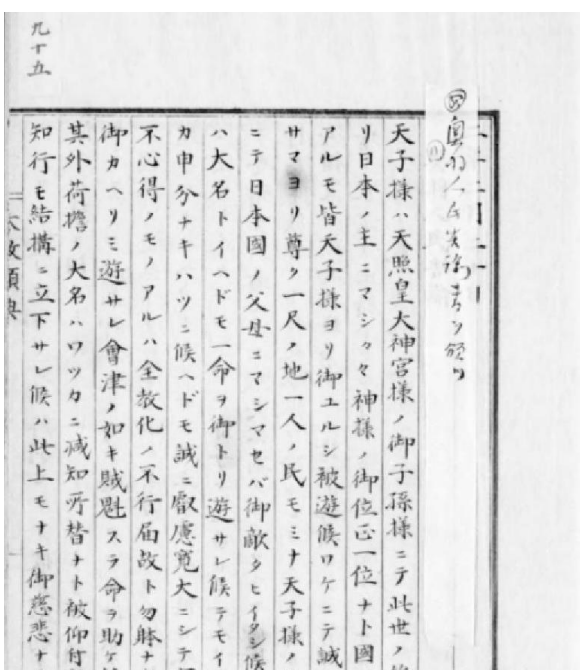 九十五
奥羽人民告諭書ヲ頒ツ
天子様ハ天照皇大神宮様ノ御子孫様ニテ此世ノ
リ日本ノ主ニマシ々々神様ノ御位正一位ナト國
アルモ皆天子様ヨリ御ユルシ被遊候ワケニテ誠
サマヨリ尊ク一尺ノ地一人ノ民モミナ天子様ノ
ニテ日本國ノ父母ニマシマセバ御敵タヒイタシ候
ハ大名トイヘドモ一命ヲ御トリ遊サレ候テモイ
カ申分ナキハツニ候ヘドモ誠ニ叡慮寛大ニシテ
不心得ノモノアルハ全教化ノ不行届故ト勿躰ナ
御カヘリミ遊サレ會津ノ如キ賊魁スラ命ヲ助ケ
其外荷擔ノ大名ハワツカニ減知所替ナト被仰付
知行モ結構ニ立下サレ候ハ此上モナキ御慈悲ナ